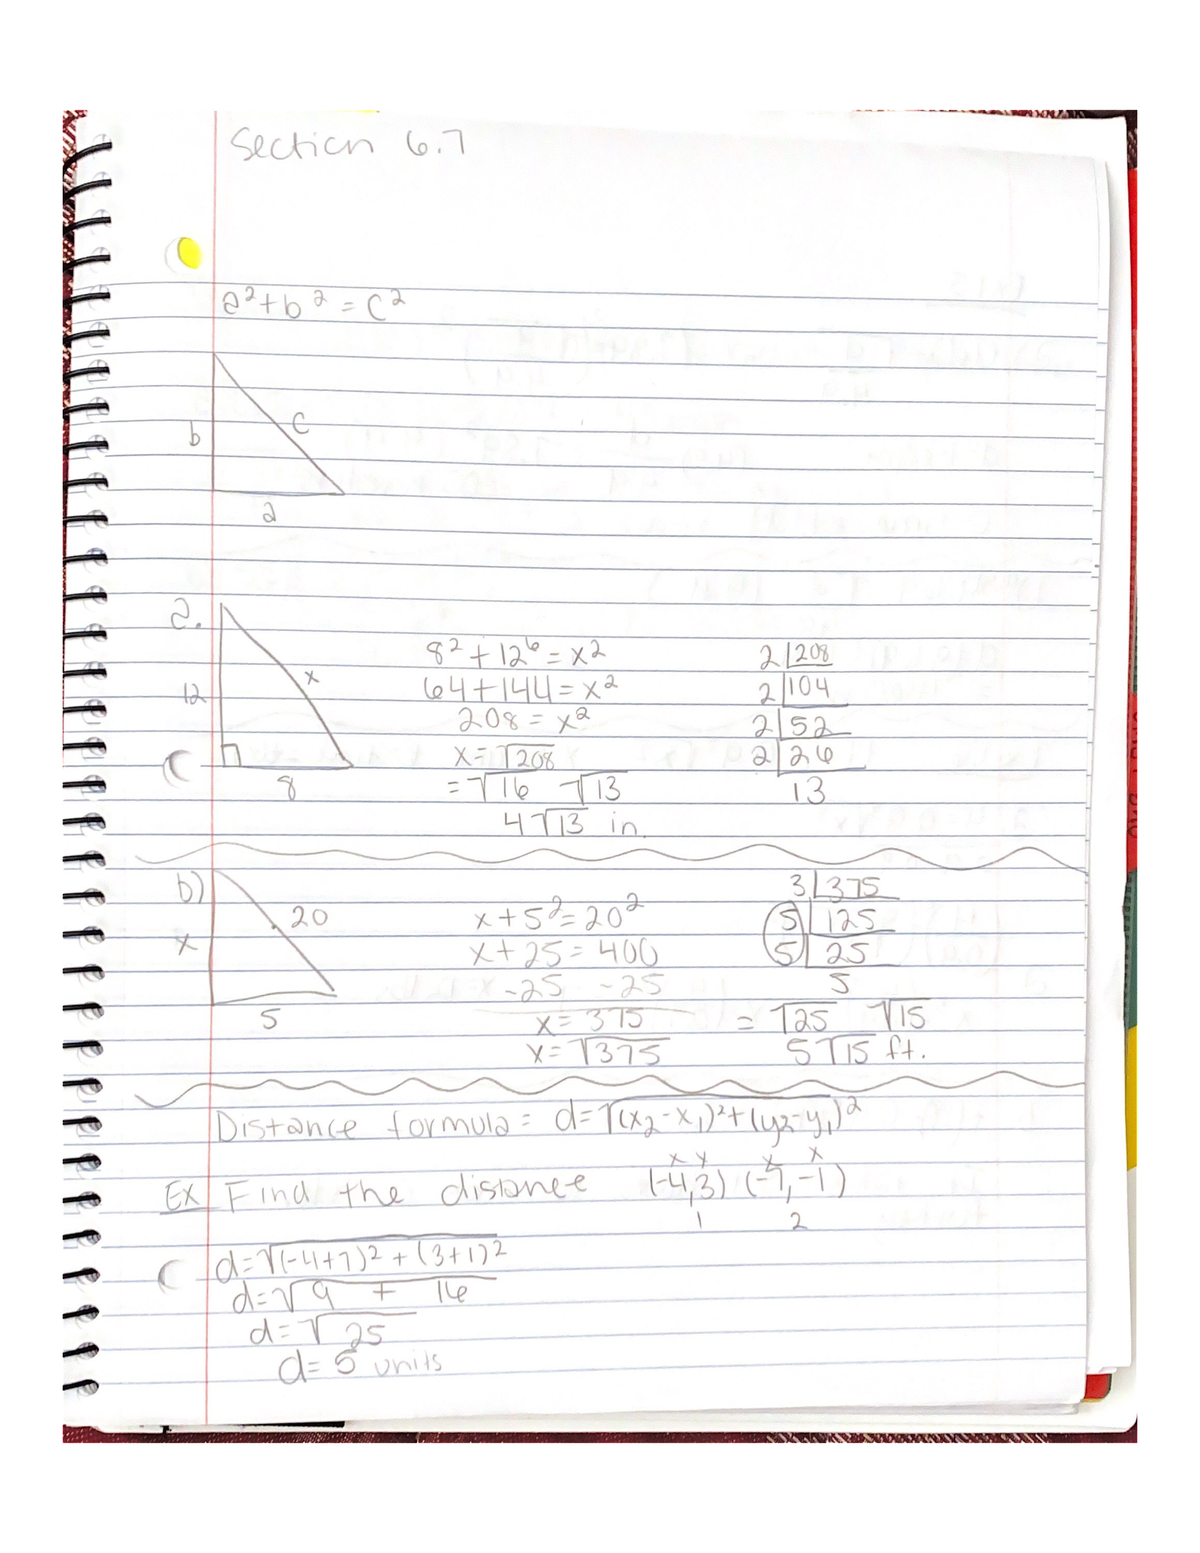 Section 6.7
a² + b² = c²
b
c
a
2.
12
x
8
8² + 12⁶ = x²
64 + 144 = x²
208 = x²
x = √208
= √16 √13
4√13 in.
2 | 208
2 | 104
2 | 52
2 | 26
13
b)
x
20
5
x + 5² = 20²
x + 25 = 400
-25 -25
x = 375
x = √375
3 | 375
5 | 125
5 | 25
5
= √25 √15
5√15 ft.
Distance formula = d = √(x₂ - x₁)² + (y₂ - y₁)²
x y x x
EX Find the distance (-4,3) (-7,-1)
1 2
d = √(-4+7)² + (3+1)²
d = √9 + 16
d = √25
d = 5 units